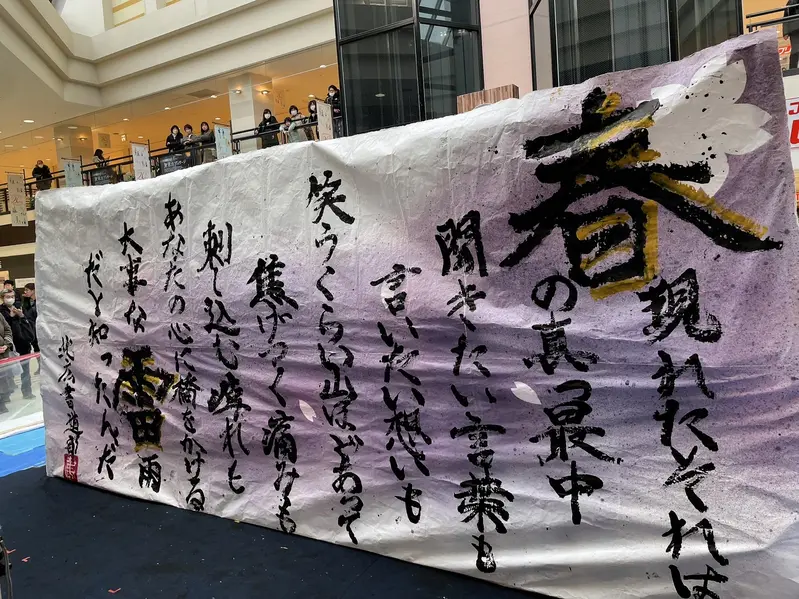 現れたそれは
春の真っ最中
聞きたい言葉も
言いたい想いも
笑うくらい山ほどあって
焦げつく痛みも
刺し込む痺れも
あなたの心に橋をかける
大事な雷雨
だと知ったんだ
北広書道部